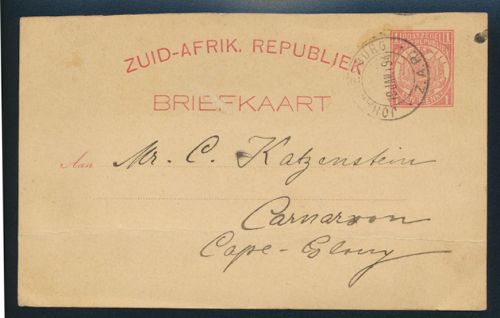 ZUID-AFRIK. REPUBLIEK
BRIEFKAART
Aan Mr. C. Katzenstein
Carnarvon
Cape-Colony
POSTZEGEL
Z.A.R.
1
1